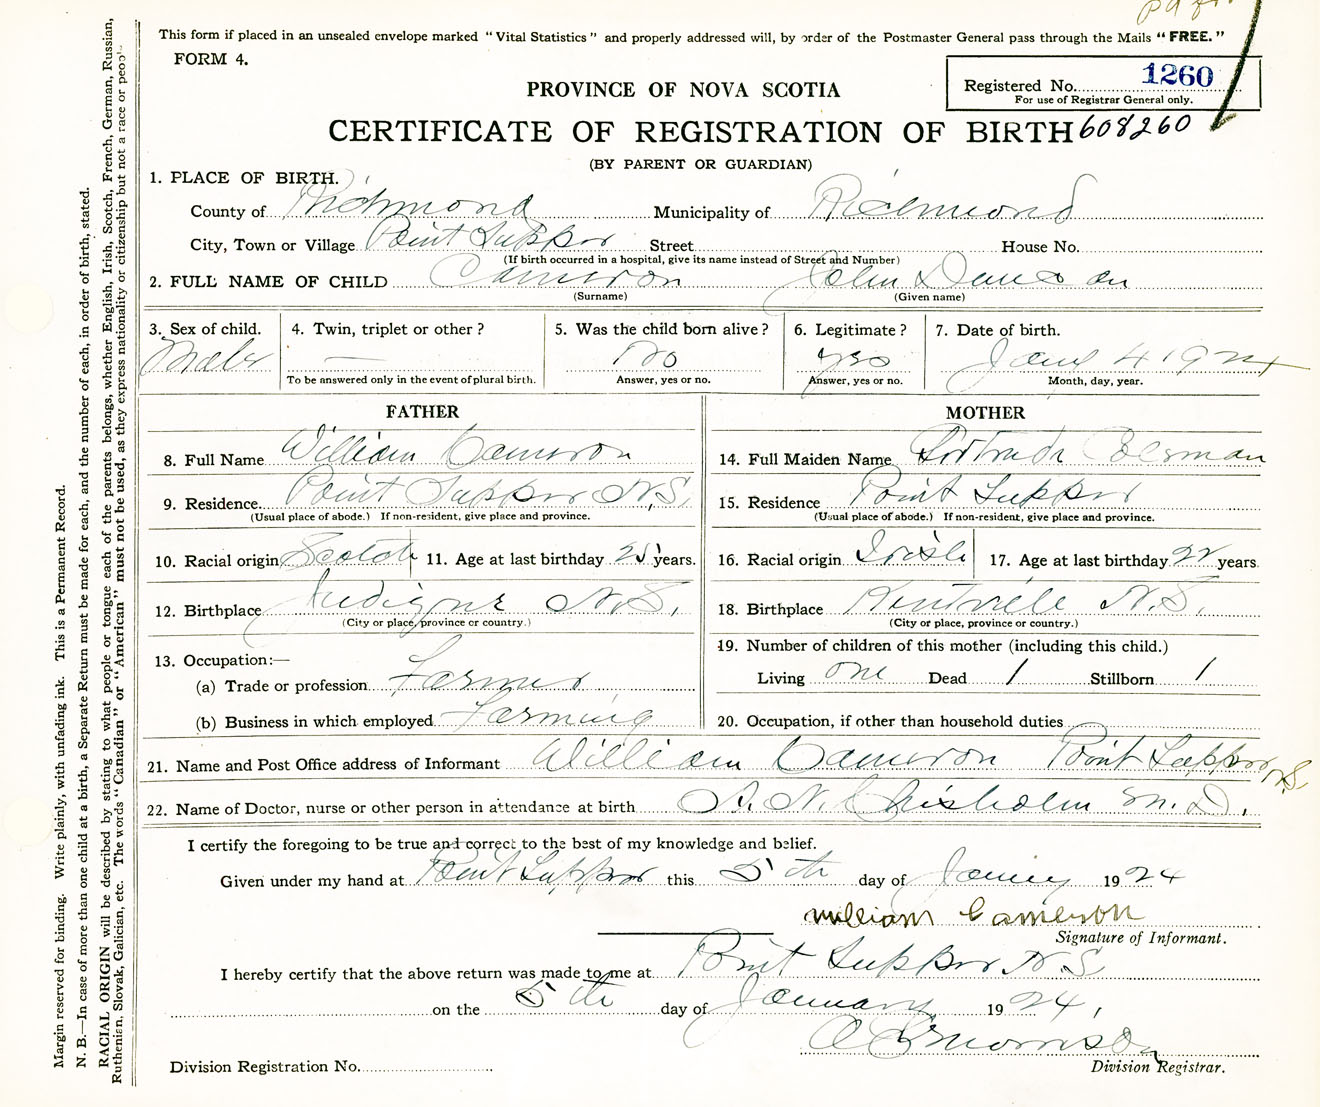 This form if placed in an unsealed envelope marked "Vital Statistics" and properly addressed will, by order of the Postmaster General pass through the Mails "FREE."
FORM 4.
Registered No. 1260
For use of Registrar General only.
PROVINCE OF NOVA SCOTIA
CERTIFICATE OF REGISTRATION OF BIRTH 608260
(BY PARENT OR GUARDIAN)
1. PLACE OF BIRTH.
County of Richmond Municipality of Richmond
City, Town or Village Point Tupper Street House No.
(If birth occurred in a hospital, give its name instead of Street and Number)
2. FULL NAME OF CHILD Cameron John Duncan
(Surname) (Given name)
3. Sex of child. 4. Twin, triplet or other? 5. Was the child born alive? 6. Legitimate? 7. Date of birth.
Male — No yes Jany 4 1924
To be answered only in the event of plural birth. Answer, yes or no. Answer, yes or no. Month, day, year.
FATHER MOTHER
8. Full Name William Cameron 14. Full Maiden Name Gertrude
9. Residence. Point Tupper N.S. 15. Residence Point Tupper
(Usual place of abode.) If non-resident, give place and province. (Usual place of abode.) If non-resident, give place and province.
10. Racial origin Scotch 11. Age at last birthday 25 years. 16. Racial origin Irish 17. Age at last birthday 22 years
12. Birthplace N.S. 18. Birthplace Kentville N.S.
(City or place, province or country.) (City or place, province or country.)
13. Occupation:— 19. Number of children of this mother (including this child.)
(a) Trade or profession Farmer Living one Dead / Stillborn 1
(b) Business in which employed Farming 20. Occupation, if other than household duties
21. Name and Post Office address of Informant William Cameron Point Tupper N.S
22. Name of Doctor, nurse or other person in attendance at birth N. Chisholm M.D.
I certify the foregoing to be true and correct to the best of my knowledge and belief.
Given under my hand at Point Tupper this 5th day of 1924
William Cameron
Signature of Informant.
I hereby certify that the above return was made to me at Point Tupper N.S
on the 5th day of January 1924,
Morrison
Division Registration No. Division Registrar.
Margin reserved for binding. Write plainly, with unfading ink. This is a Permanent Record.
N. B.—In case of more than one child at a birth, a Separate Return must be made for each, and the number of each, in order of birth, stated.
RACIAL ORIGIN will be described by stating to what people or tongue each of the parents belongs, whether English, Irish, Scotch, French, German, Russian,
Ruthenian, Slovak, Galician, etc. The words "Canadian" or "American" must not be used, as they express nationality or citizenship but not a race or people.